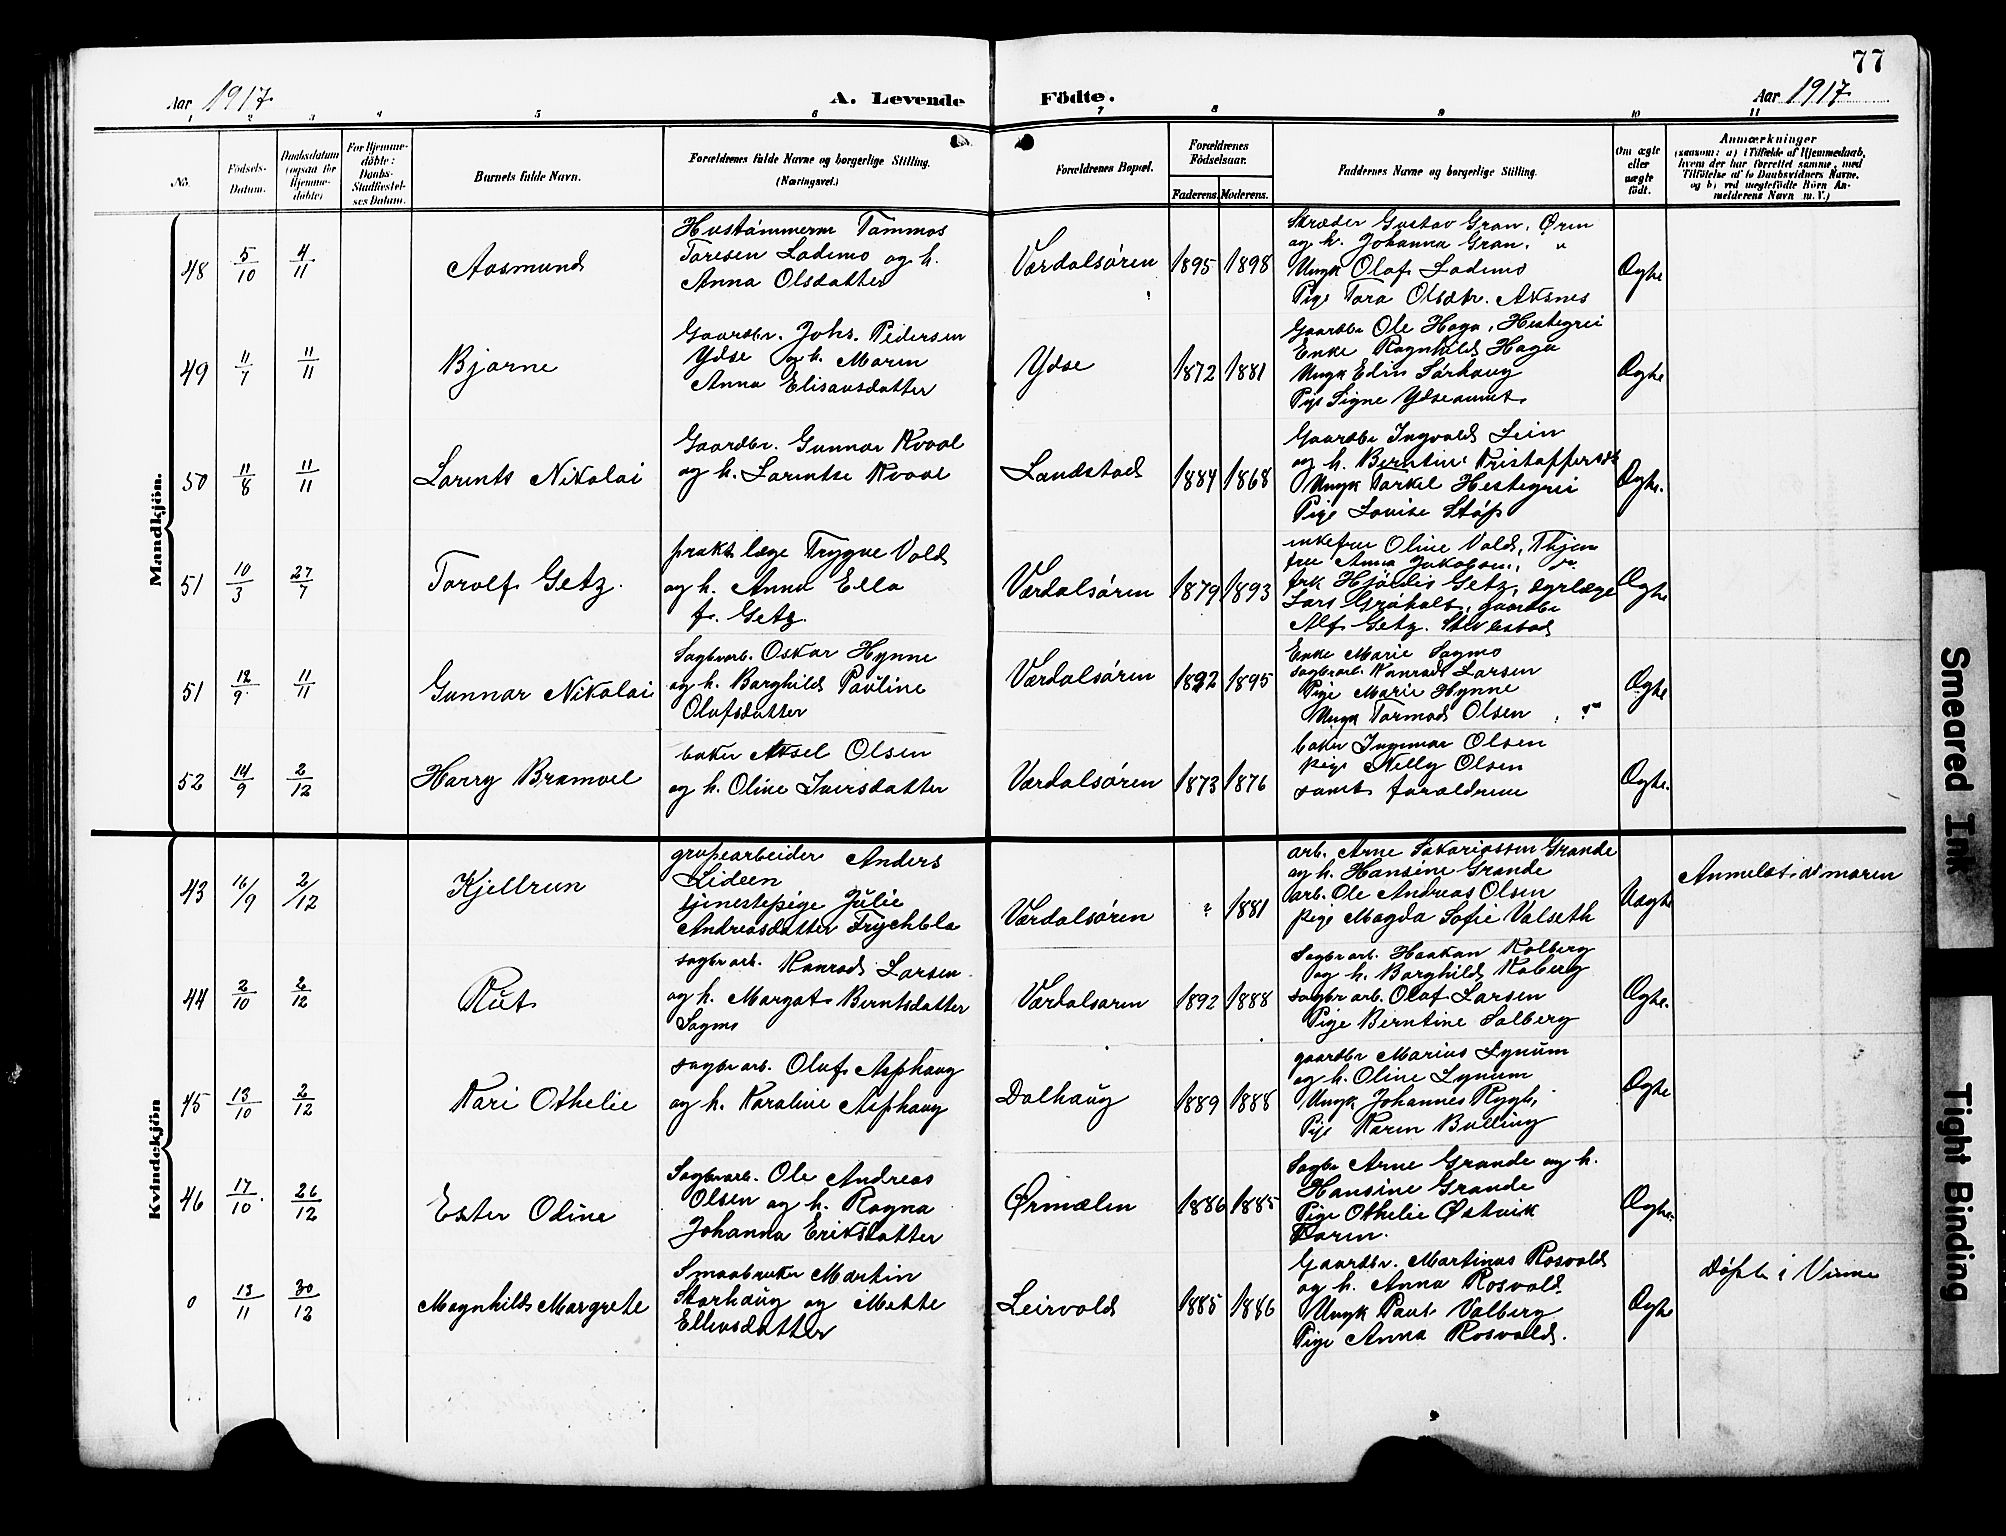 77
Aar 1917.
A. Levende Födte.
Aar 1917.
1 2 3 4 5 6 7 8 9 10 11
No.
Födsels-
Datum.
Daabsdatum
(ogsaa for
Hjemme-
döbte)
For Hjemme-
döbte:
Daabs-
Stadfæstel-
ses Datum.
Barnets fulde Navn.
Forældrenes fulde Navne og borgerlige Stilling.
(Næringsvei.)
Forældrenes Bopæl.
Forældrenes
Födselsaar.
Faderens. Moderens.
Faddernes Navne og borgerlige Stilling.
Om ægte
eller
uægte
födt.
Anmærkninger
(saasom: a) i Tilfælde af Hjemmedaab,
hvem der har forrettet samme, med
Tilföielse af to Daabsvidners Navne,
og b) ved uægtefödte Börn An-
melderens Navn m. V.)
Mandkjön.
48 5/10 4/11
Aasmund
Hustömmerm Tommas
Toresen Lademo og h.
Anna Olsdatter
Værdalsören
1895 1898
Skræder Gustav Gran, Ören
og h. Johanna Gran. "
Ungk Olaf Lademo
Pige Tora Olsdtr. Aksnes
Ægte
49 11/7 11/11
Bjarne
Gaardbr. Johs. Pedersen
Ydse og h. Maren
Anna Elisausdatter
Ydse
1872 1881
Gaardbr Ole Haga, Hestegrei
Enke Ragnhild Haga
Ungk Edin Sörhaug
Pige Signe Ydseaunet
Ægte
50 11/8 11/11
Lorents Nikolai
Gaardbr. Gunnar Kvaal
og h. Lorentse Kvaal
Landstad
1884 1868
Gaardbr Ingvald Lein
og h. Berntine Kristoffersdt
Ungk Torkel Hestegrei
Pige Lovise
Ægte.
51 10/3 27/7
Torolf Getz.
prakt læge Trygve Vold
og h. Anna Ella
f. Getz.
Værdalsören
1879 1893
enkefru Oline Vold,
fru Anna Jakobsen,
frk Hjördis Getz, dyrlæge
Lars gaardbr
Alf Getz. Stiklestad
Ægte
51 12/9 11/11
Gunnar Nikolai
Sagbrarb. Oskar Hynne
og h. Borghild Pauline
Olufsdatter
Værdalsören
1892 1895
Enke Marie Sagmo
sagbrarb. Konrad Larsen
Pige Marie Hynne
Ungk Tormod Olsen
Ægte
52 14/9 2/12
Harry Bramvel
baker Aksel Olsen
og h. Oline Iversdatter
Værdalsören
1873 1876
baker Ingemar Olsen
pige Nelly Olsen
samt forældrene
Ægte.
Kvindekjön
43 16/9 2/12
Kjellrun
grubearbeider Anders
Lideen
tjenestepige Julie
Andreasdatter
Værdalsören
? 1881
arb. Arne Sakariassen Grande
og h. Hansine Grande
arb. Ole Andreas Olsen
pige Magda Sofie Valseth
Uægte
Anmeldt af moren
44 2/10 2/12
Rut
sagbrarb. Konrad Larsen
og h. Margot Berntsdatter
Sagmo
Værdalsören
1892 1888
Sagbrarb. Haakon Kolberg
og h. Borghild Kolberg
sagbr arb. Olaf Larsen
Pige Berntine Solberg
Ægte.
45 13/10 2/12
Kari Othelie
sagbrarb. Oluf Asphaug
og h. Karoline Asphaug
Dalhaug
1889 1888
gaardbr Marius Lynum
og h. Oline Lynum
Ungk Johannes Rygh,
Pige Karen Balling
Ægte
46 17/10. 26/12
Ester Odine
Sagbrarb. Ole Andreas
Olsen og h. Ragna
Johanna Eriksdatter
Örmælen
1886 1885
Sagbr Arne Grande og h.
Hansine Grande
Pige Othelie Östvik
Faren.
Ægte.
0 13/11 30/12
Magnhild Margrete
Smaabruker Martin
Storhaug og Mette
Ellevsdatter
Leirvold
1885 1886
Gaardbr. Martinus Rosvold
og h. Anna Rosvold.
Ungk Paul Valberg
Pige Anna Rosvold.
Ægte
Döpt i Vinne
Smeared Ink
Tight Binding